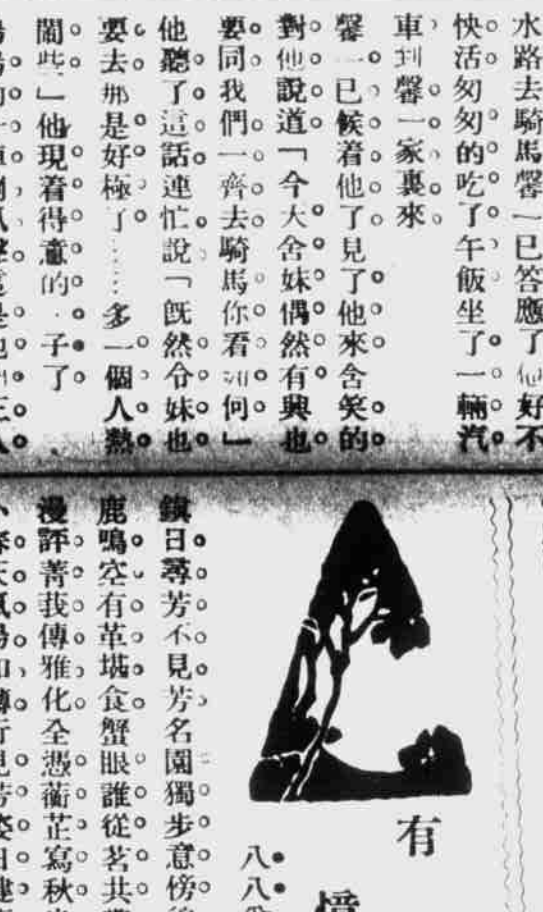 水路去騎馬馨一已答應了他好不
快活匆匆的吃了午飯坐了一輛汽
車到馨一家裏來
馨一已候着他了見了他來含笑的
對他說道「今天舍妹偶然有興也
要同我們一齊去騎馬你看如何」
他聽了這話連忙說「旣然令妹也
要去那是好極了……多一個人熱
鬧些」他現着得意的子了
有
憶
八八
鎭日尋芳不見芳名園獨步意傍
鹿鳴空有革堪食蟹眼誰從茗共
漫評菁莪傳雅化全憑蘅芷寫秋